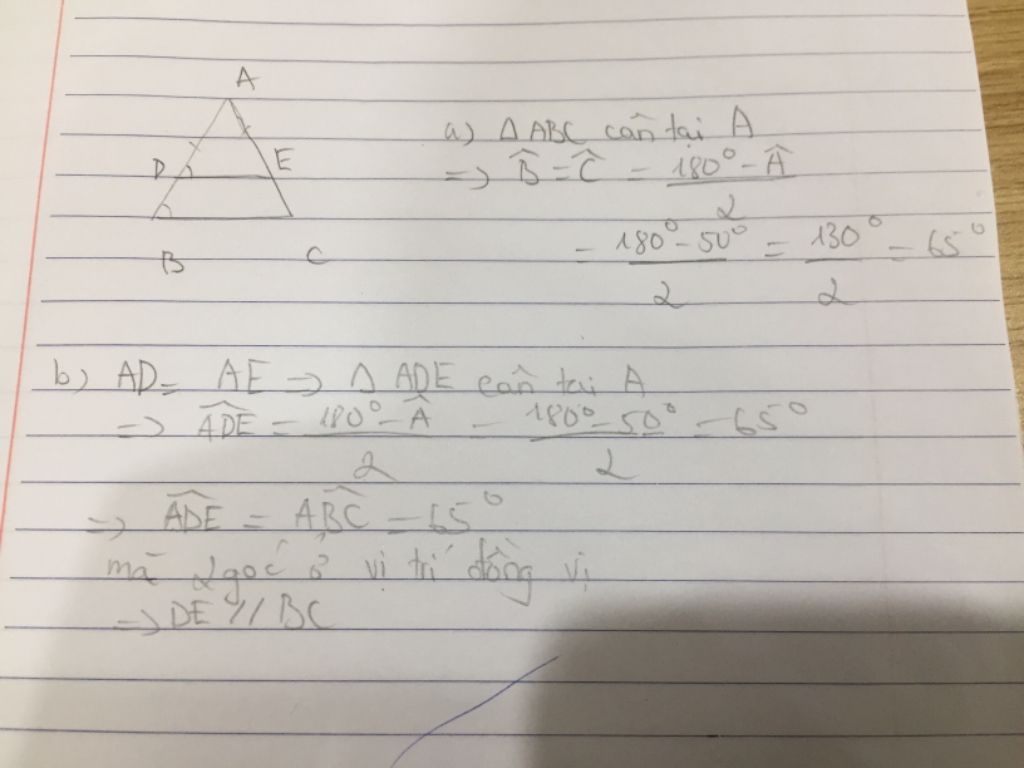 A
D E
B C
a) Δ ABC cân tại A
=> B̂ = Ĉ = (180° - Â)/2
= (180° - 50°)/2 = 130°/2 = 65°
b) AD = AE => Δ ADE cân tại A
=> \widehat{ADE} = (180° - Â)/2 = (180° - 50°)/2 = 65°
=> \widehat{ADE} = \widehat{ABC} = 65°
mà 2 góc ở vị trí đồng vị
=> DE // BC